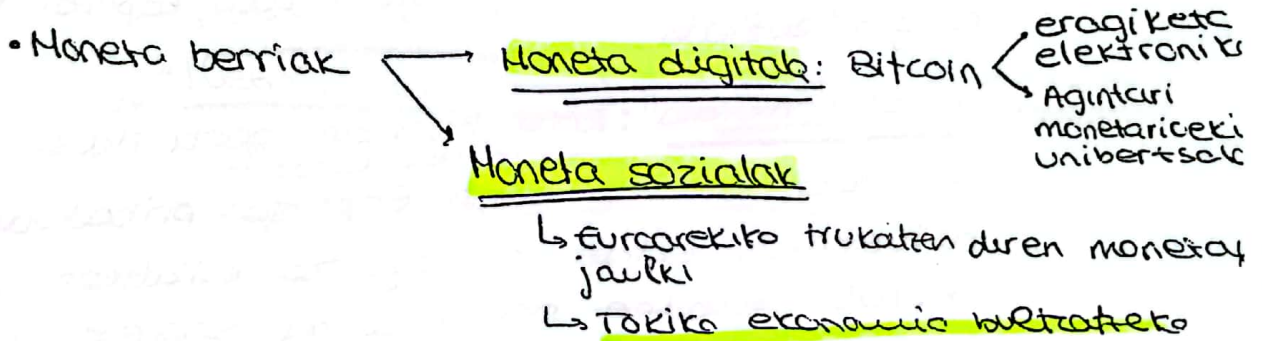 • Moneta berriak → Moneta digitala: Bitcoin
eragiketa
elektronik
Agintari
monetariceki
unibertsala
Moneta sozialak
↳ Euroarekiko trukatzen diren monetak
jaulki
↳ Tokiko ekonomia bultzatzeko